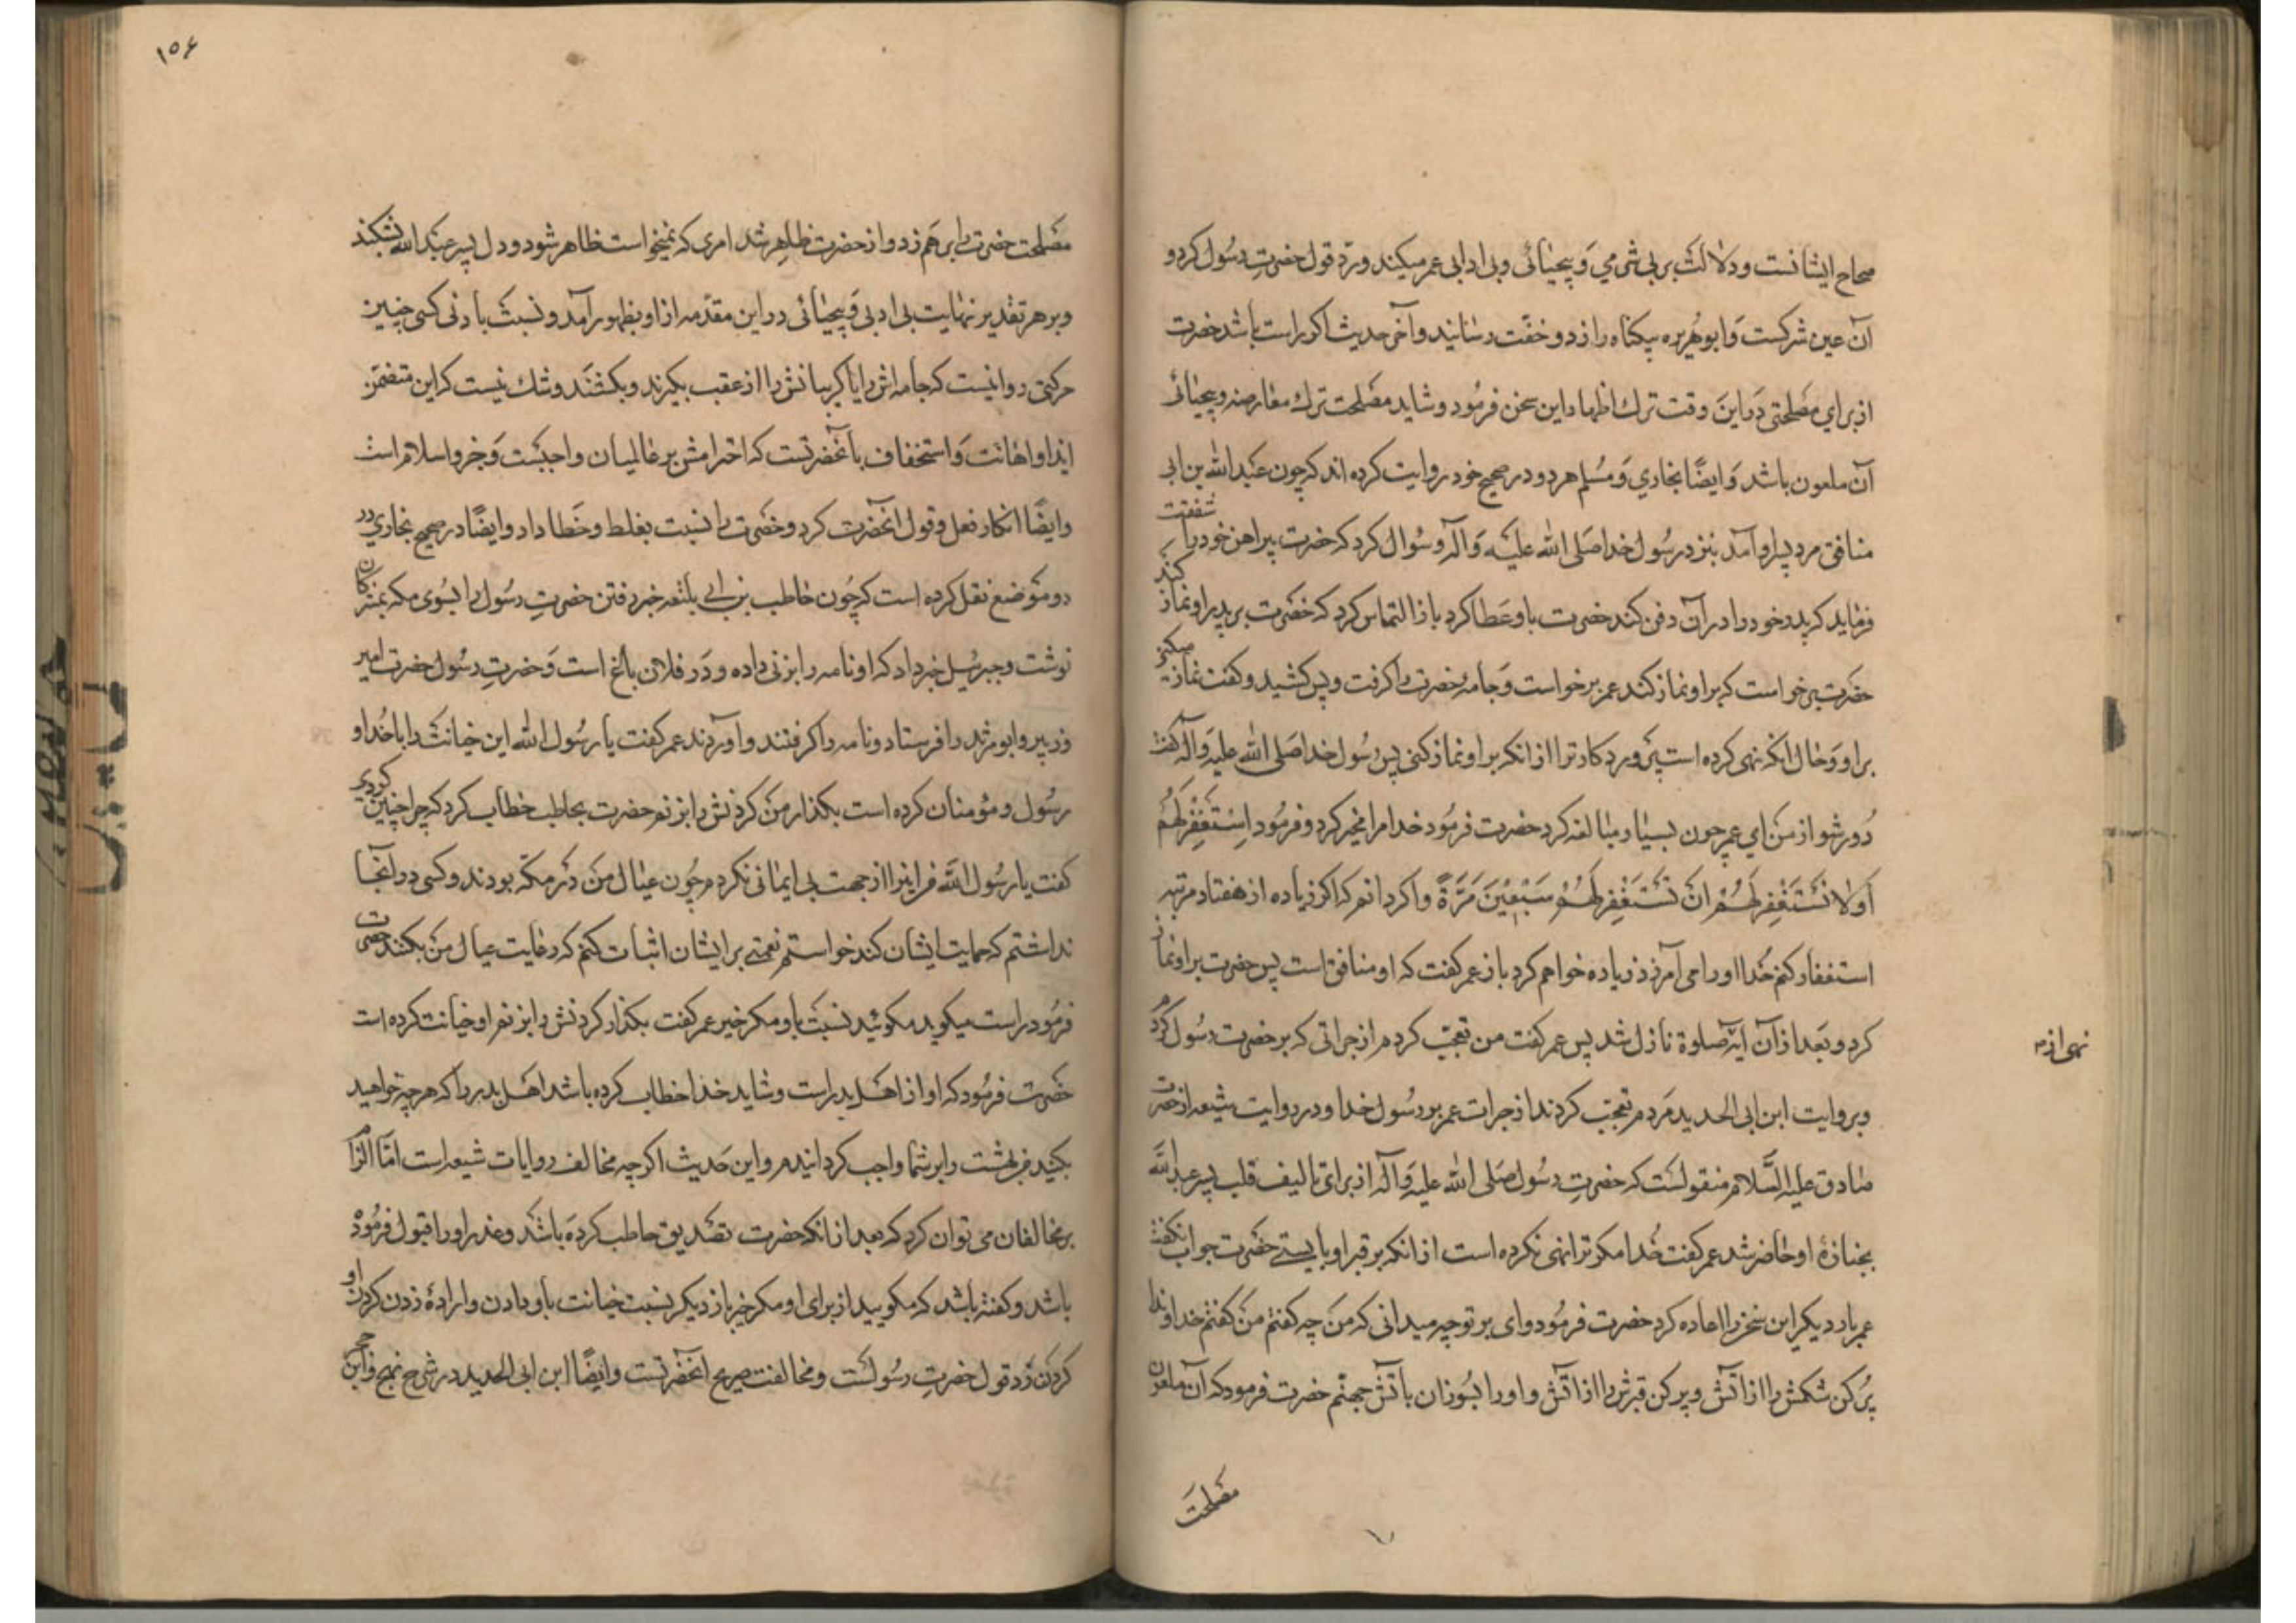 صحاح ایشانست و دلالت بر بی شرمی و بیحیائی و بی ادابی عمر میکند و رد قول حضرت رسول کرد و
آن عین شرکست و ابوهریره بیکناه را زد و خفت رسانید و آخر حدیث اکر راست باشد حضرت
از برای مصلحتی در این وقت ترک اظهار این سخن فرمود و شاید مصلحت ترک معارضه و بیحیائی
آن ملعون باشد و ایضا بخاری و مسلم هر دو در صحیح خود روایت کرده اند که چون عبد الله بن ابی
منافق مرد پسر او آمد بنزد رسول خدا صلی الله علیه و آله و سوال کرد که حضرت پیراهن خود را شفقت
فرماید که پدر خود را در آن دفن کند حضرت باو عطا کرد باز التماس کرد که حضرت بر پدر او نماز کند
حضرت برخواست که بر او نماز کند عمر برخواست و جامه حضرت را کرفت و پس کشید و کفت نماز میکنی
بر او و حال انکه نهی کرده است پروردکار ترا از انکه بر او نماز کنی پس رسول خدا صلی الله علیه و آله کفت
دور شو از من ای عمر چون بسیار مبالغه کرد حضرت فرمود خدا مرا مخیر کرد و فرمود استغفر لهم
او لا تستغفر لهم ان تستغفر لهم سبعین مرة و اکر دانم که اکر زیاده از هفتاد مرتبه
استغفار کنم خدا او را می آمرزد زیاده خواهم کرد باز عمر کفت که او منافق است پس حضرت بر او نماز
کرد و بعد از آن آیه صلوة نازل شد پس عمر کفت من تعجب کردم از جراتی که بر حضرت رسول کردم
نهی از
و بروایت ابن ابی الحدید مردم تعجب کردند از جرات عمر بر رسول خدا و در روایت شیعه از حضرت
صادق علیه السلام منقولست که حضرت رسول صلی الله علیه و آله از برای تالیف قلب پسر عبد الله
بجنازه او حاضر شد عمر کفت خدا مکر ترا نهی نکرده است از انکه بر قبر او بایستی حضرت جواب نکفت
عمر بار دیکر این سخن را اعاده کرد حضرت فرمود وای بر تو چه میدانی که من چه کفتم من کفتم خداوندا
پر کن شکمش را از آتش و پر کن قبرش را از آتش و او را بسوزان باتش جهنم حضرت فرمود که آن ملعون
مصلحت
۱۵۶
مصلحت حضرت را بر هم زد و از حضرت ظاهر شد امری که نمیخواست ظاهر شود و دل پسر عبد الله بشکند
و بر هر تقدیر نهایت بی ادبی و بیحیائی در این مقدمه از او بظهور آمد و نسبت بادنی کسی چنین
حرکتی روا نیست که جامه اش را یا کریبانش را از عقب بکیرند و بکشند و شک نیست که این متضمن
ایذا و اهانت و استخفاف بآنحضرتست که احترامش بر عالمیان واجبست و جزو اسلام است
و ایضا انکار فعل و قول انحضرت کرد و حضرت را نسبت بغلط و خطا داد و ایضا در صحیح بخاری در
دو موضع نقل کرده است که چون خاطب بن ابی بلتعه خبر رفتن حضرت رسول را بسوی مکه بمشرکان
نوشت و جبرئیل خبر داد که او نامه را بزنی داده و در فلان باغ است و حضرت رسول حضرت امیر
و زبیر و ابو مرثد را فرستاد و نامه را کرفتند و آوردند عمر کفت یا رسول الله این خیانت را با خدا و
رسول و مؤمنان کرده است بکذار من کردنش را بزنم حضرت بحاطب خطاب کرد که چرا چنین کردی
کفت یا رسول الله فر اینرا از جهت بی ایمانی نکردم چون عیال من در مکه بودند و کسی در آنجا
نداشتم که حمایت ایشان کند خواستم نعمتی بر ایشان اثبات کنم که رعایت عیال من بکنند حضرت
فرمود راست میکوید مکوئید نسبت باو مکر خیر عمر کفت بکذار کردنش را بزنم او خیانت کرده است
حضرت فرمود که او از اهل بدر است و شاید خدا خطاب کرده باشد اهل بدر را که هر چه خواهید
بکنید فر بهشت را بر شما واجب کردانیدم و این حدیث اکر چه مخالف روایات شیعه است اما الزام
بر مخالفان می توان کرد که بعد از انکه حضرت تصدیق حاطب کرده باشد و عذر او را قبول فرموده
باشد و کفته باشد که مکویید از برای او مکر خیر باز دیکر نسبت خیانت باو دادن و اراده زدن کردن او
کردن رد قول حضرت رسولست و مخالفت صریح انحضرتست و ایضا ابن ابی الحدید در شرح نهج و ابن حجر